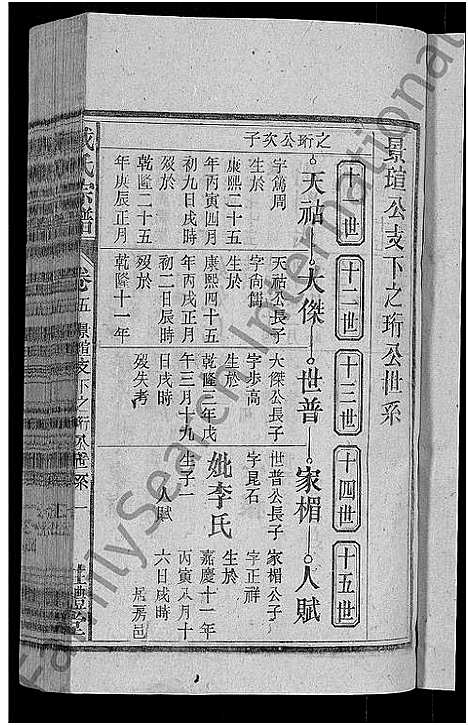 景瑄公支下之珩公世系
十一世
十二世
十三世
十四世
十五世
之珩公次子
天祜
大傑
世普
家楣
人賦
字篤周
生於
康熙二十五
年丙寅四月
初九日戌時
歿於
乾隆二十五
年庚辰正月
天祜公長子
字尚儒
生於
康熙四十五
年丙戌正月
初二日辰時
歿於
乾隆十一年
大傑公長子
字步高
生於
乾隆三年戊
年三月十九
日戌時
歿失考
世普公長子
字昆石
妣李氏
生子一
人賦
家楣公子
字正祥
生於
嘉慶十一年
丙寅八月十
六日戌時
居房邑
氏宗譜
卷五
景瑄支下之珩公世系
一
FamilySearch International